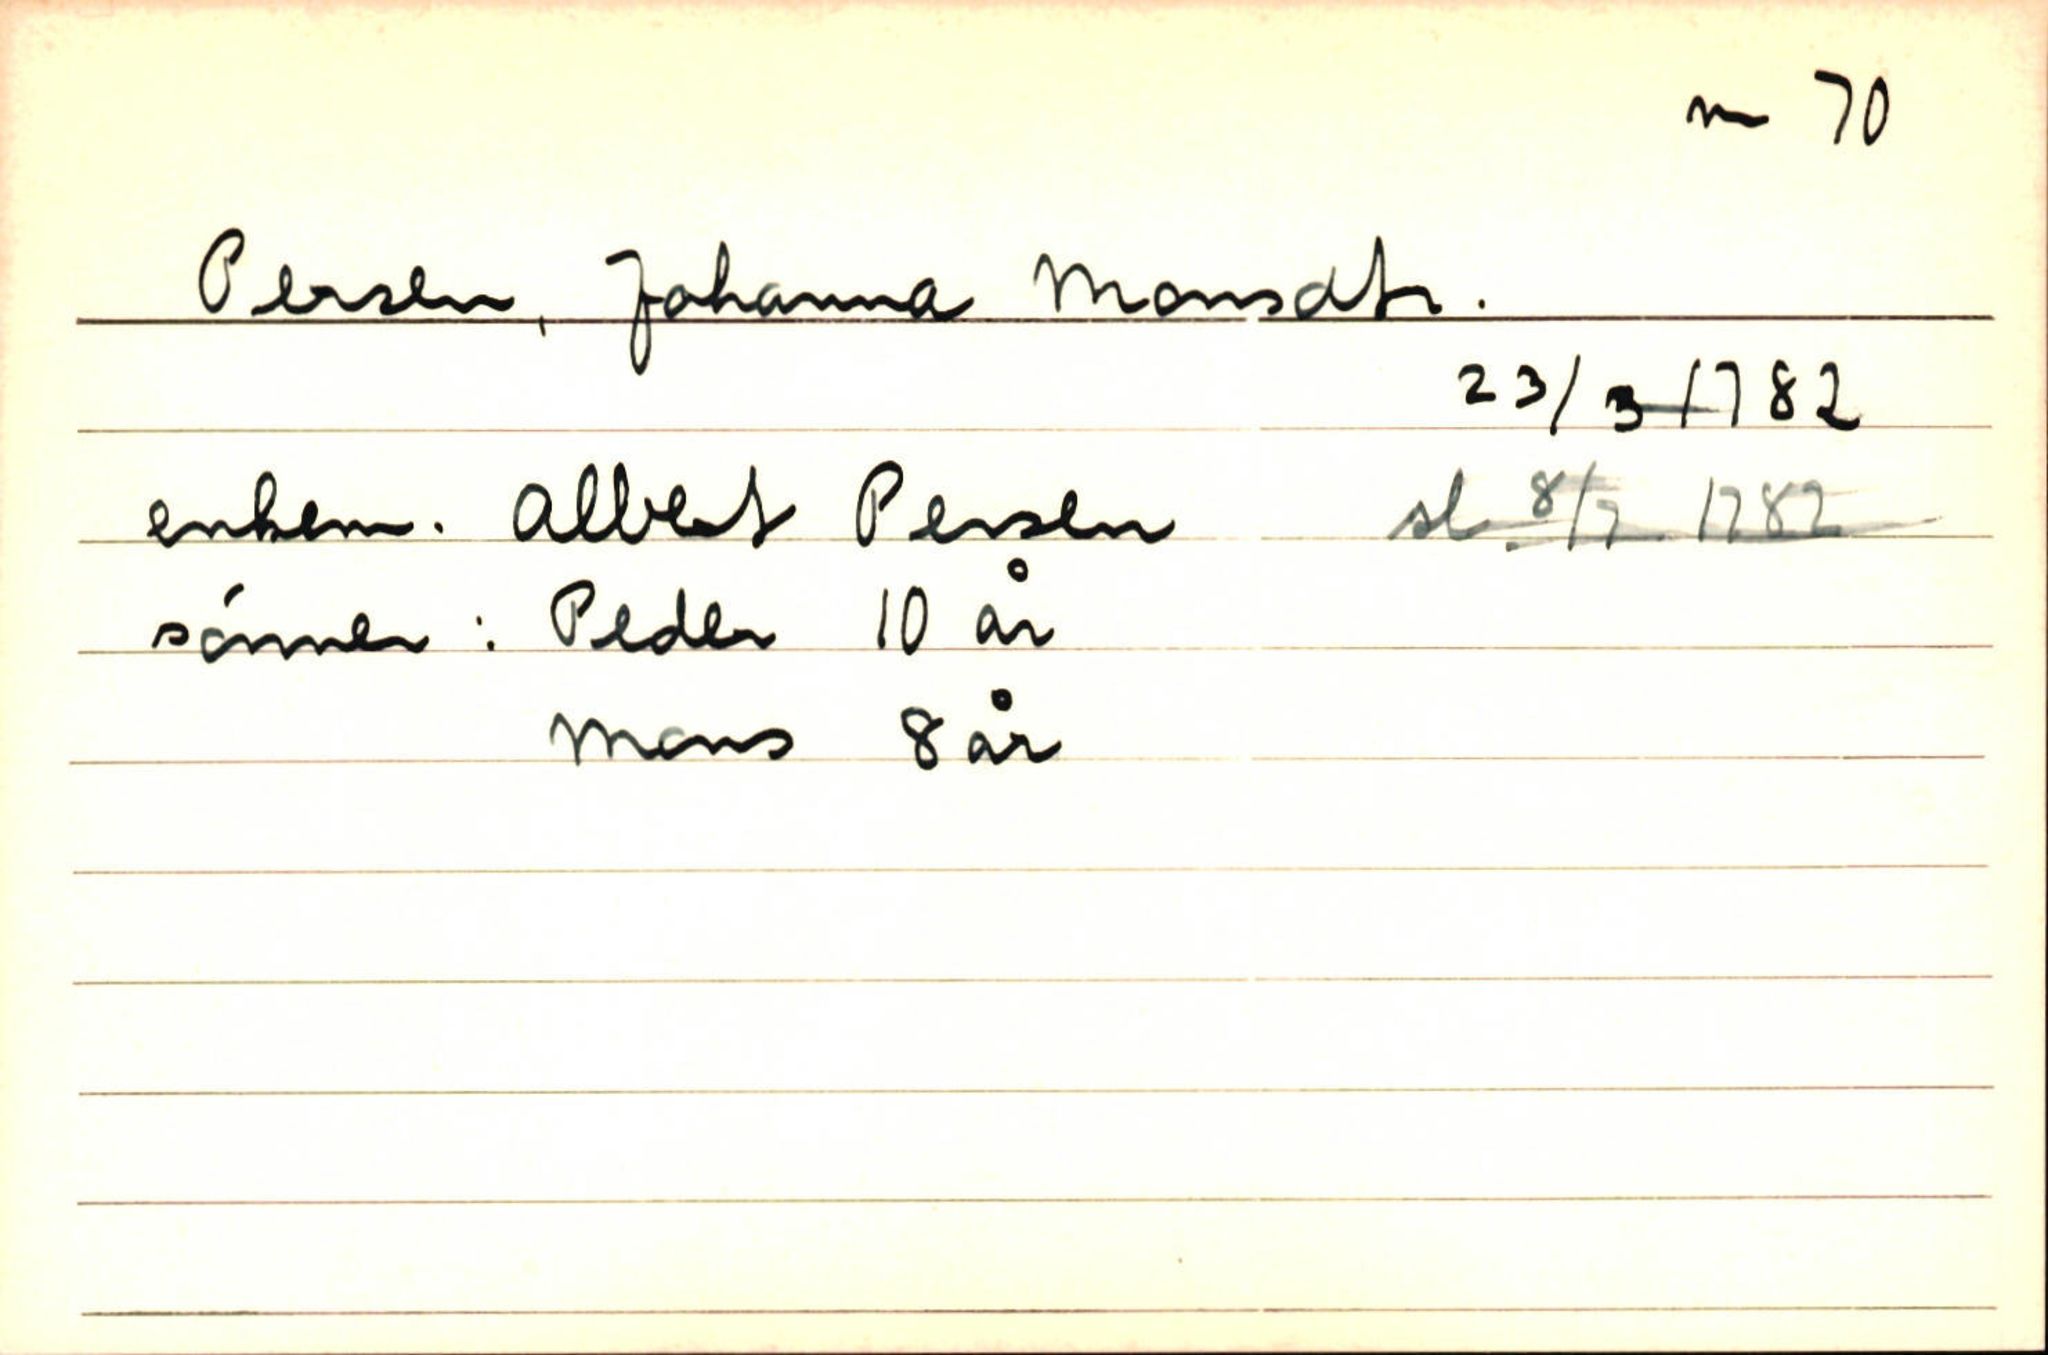 m 70
Persen, Johanna Monsdtr.
23/3 1782
enkem. Albert Persen sl. 8/7. 1782
sónner: Peder 10 år
Mons 8 år